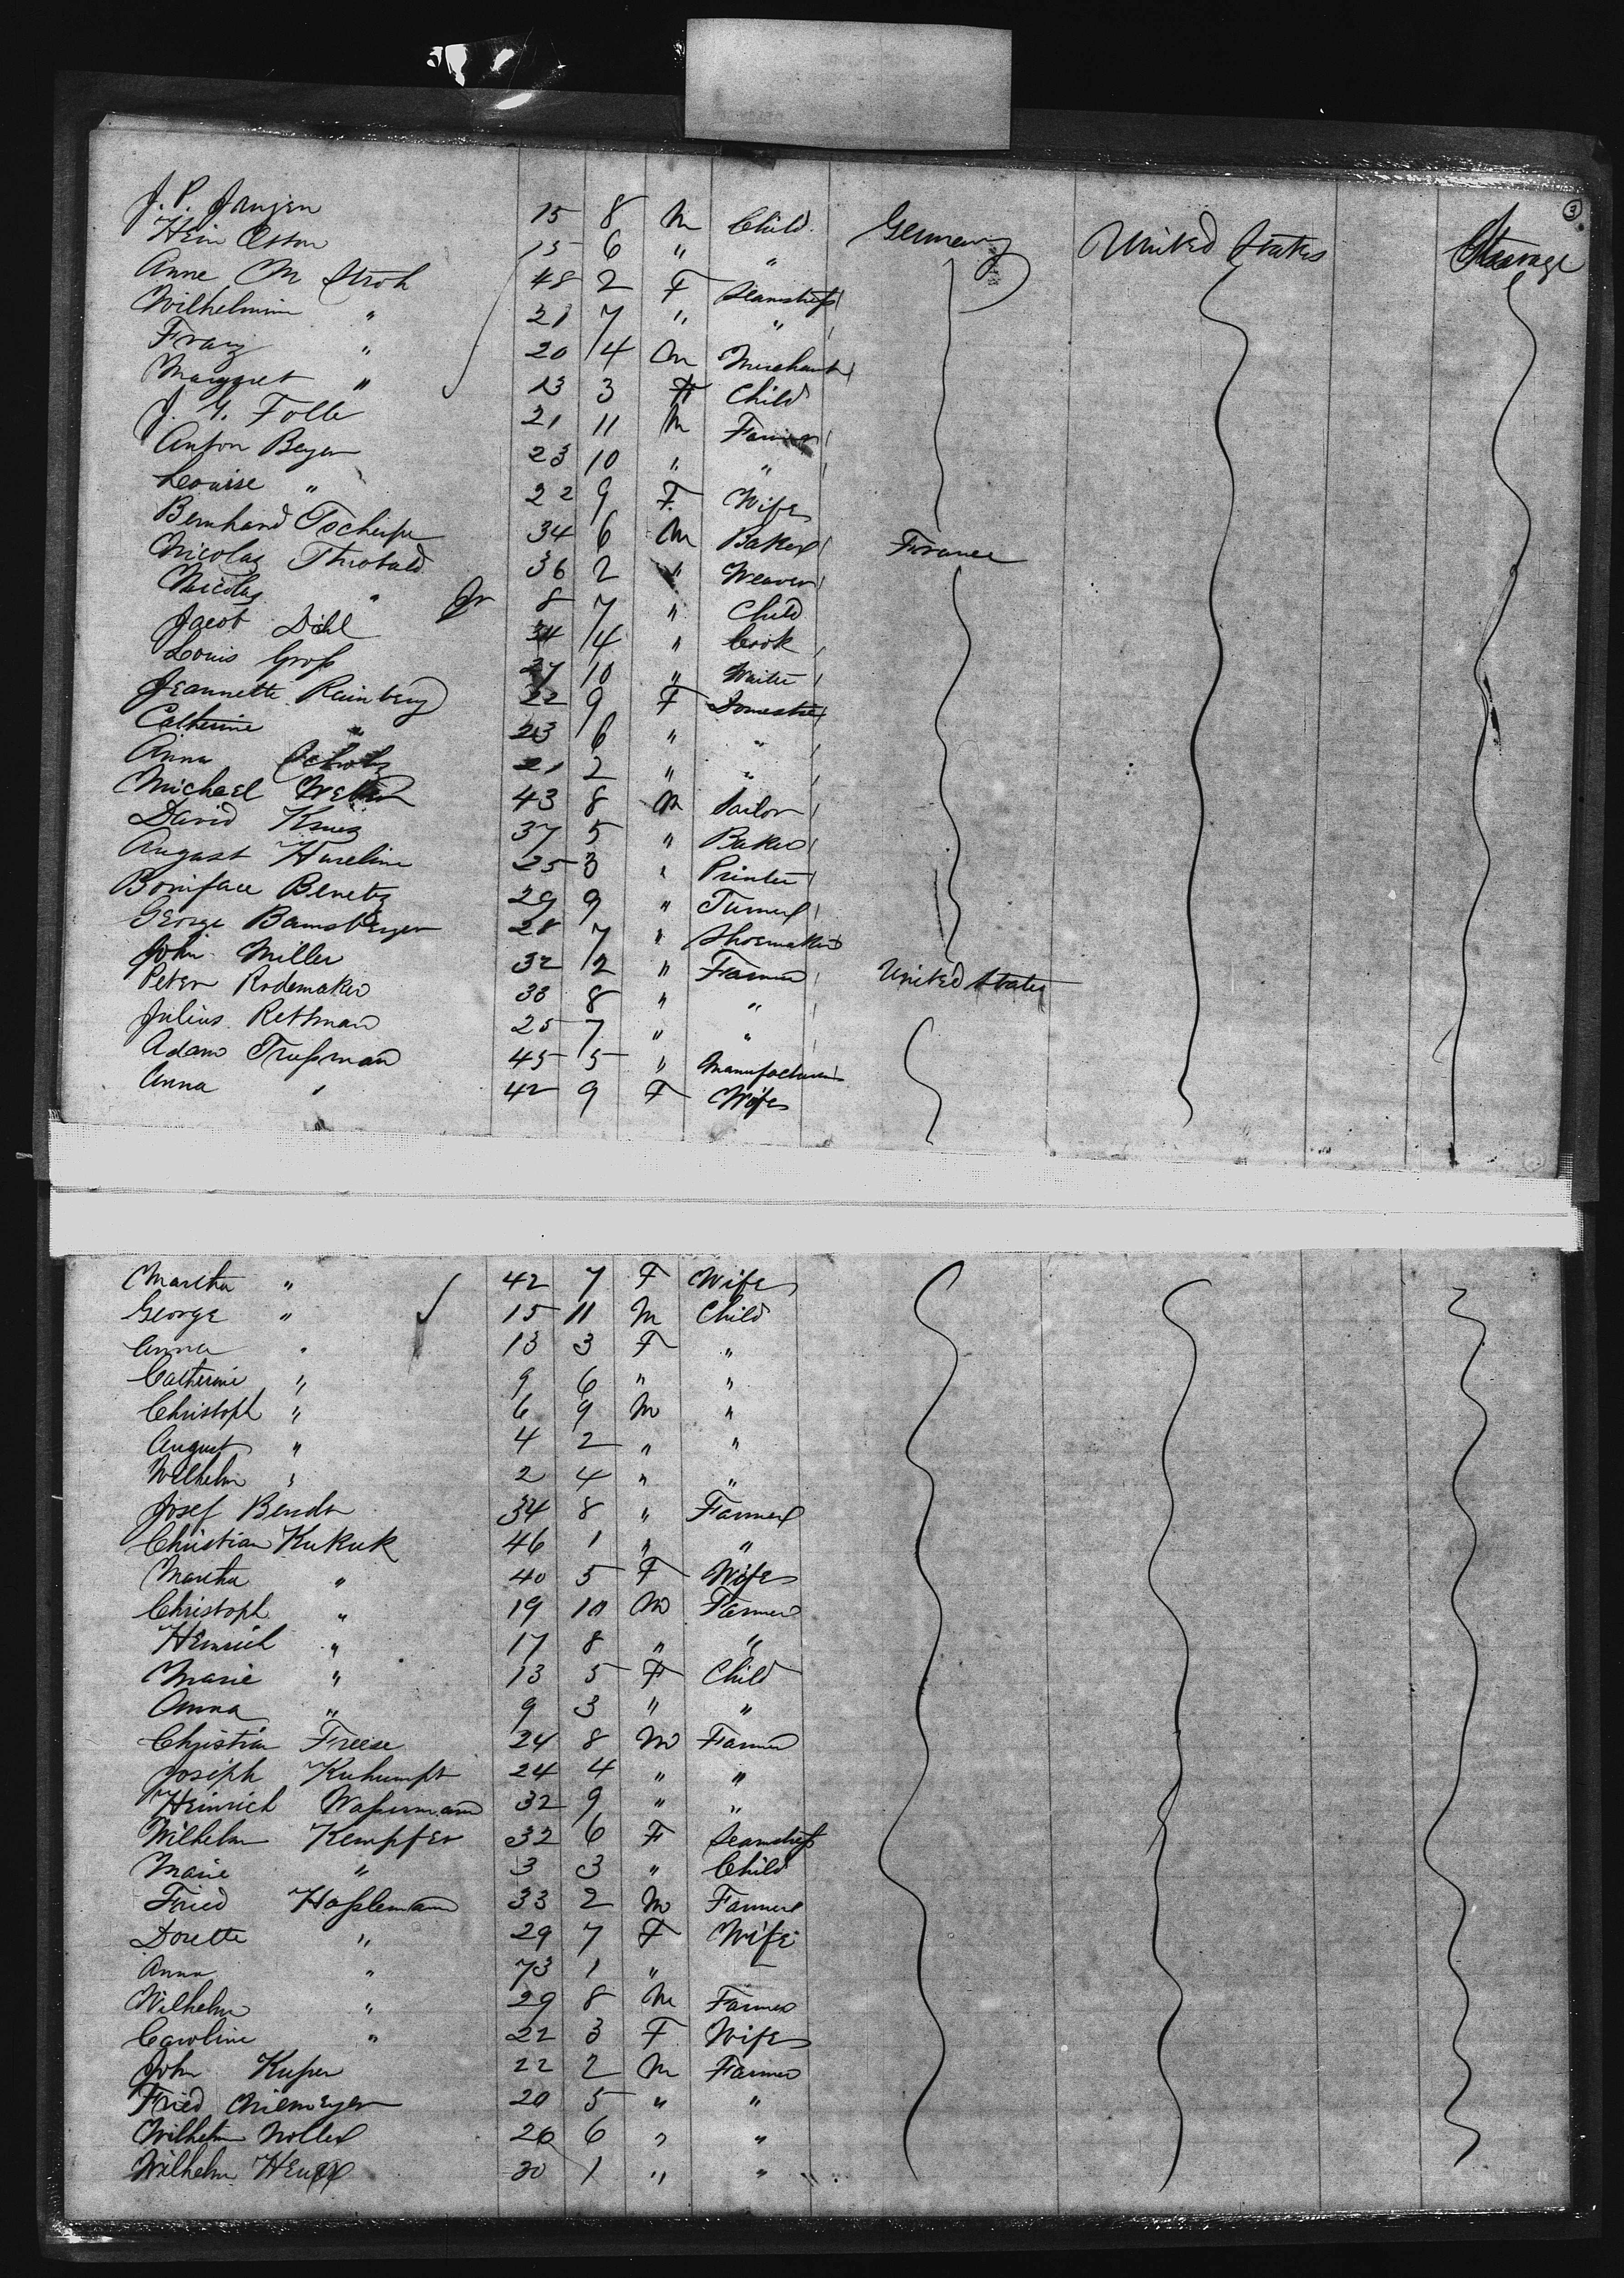 3
J. P. Janzen 15 8 M Child Germany United States Steerage
Hein Oston 15 6 " "
Anne M Stroh 48 2 F Seamstress
Wilhelmine " 21 7 " "
Franz " 20 4 M Merchant
Margaret " 13 3 F Child
J. G. Folle 21 11 M Farmer
Anton Beyer 23 10 " "
Louise " 22 9 F Wife
Bernhand Tscherpe 34 6 M Baker France
Nicolas Theobald 36 2 " Weaver
Nicolas " Jr 8 7 " Child
Jacob Dihl 34 4 " Cook
Louis Gross 27 10 " Waiter
Jeannette Rainberg 22 9 F Domestic
Catherine " 23 6 " "
Anna Scholz 21 2 " "
Michael Weber 43 8 M Sailor
David Krieg 37 5 " Baker
August Hureline 25 3 " Printer
Boniface Benetz 29 9 " Turner
George Bamsberger 28 7 " Shoemaker
John Miller 32 2 " Farmer United States
Peter Rodemaker 33 8 " "
Julius Rethman 25 7 " "
Adam Trussman 45 5 " Manufacturer
Anna " 42 9 F Wife
Martha " 42 7 F Wife
George " 15 11 M Child
Anna " 13 3 F "
Catherine " 9 6 " "
Christoph " 6 9 M "
August " 4 2 " "
Wilhelm " 2 4 " "
Josef Bender 34 8 " Farmer
Christian Kukuk 46 1 " "
Martha " 40 5 F Wife
Christoph " 19 10 M Farmer
Heinrich " 17 8 " "
Marie " 13 5 F Child
Anna " 9 3 " "
Christian Freese 24 8 M Farmer
Joseph Kuhumpt 24 4 " "
Heinrich Wassermann 32 9 " "
Wilhelm Kempfer 32 6 F Seamstress
Marie " 3 3 " Child
Fried Hasslemann 33 2 M Farmer
Dorette " 29 7 F Wife
Anna " 73 1 "
Wilhelm " 29 8 M Farmer
Caroline " 22 3 F Wife
John Kuper 22 2 M Farmer
Fried Niemeyer 20 5 " "
Wilhelm Noller 26 6 " "
Wilhelm 30 1 " "